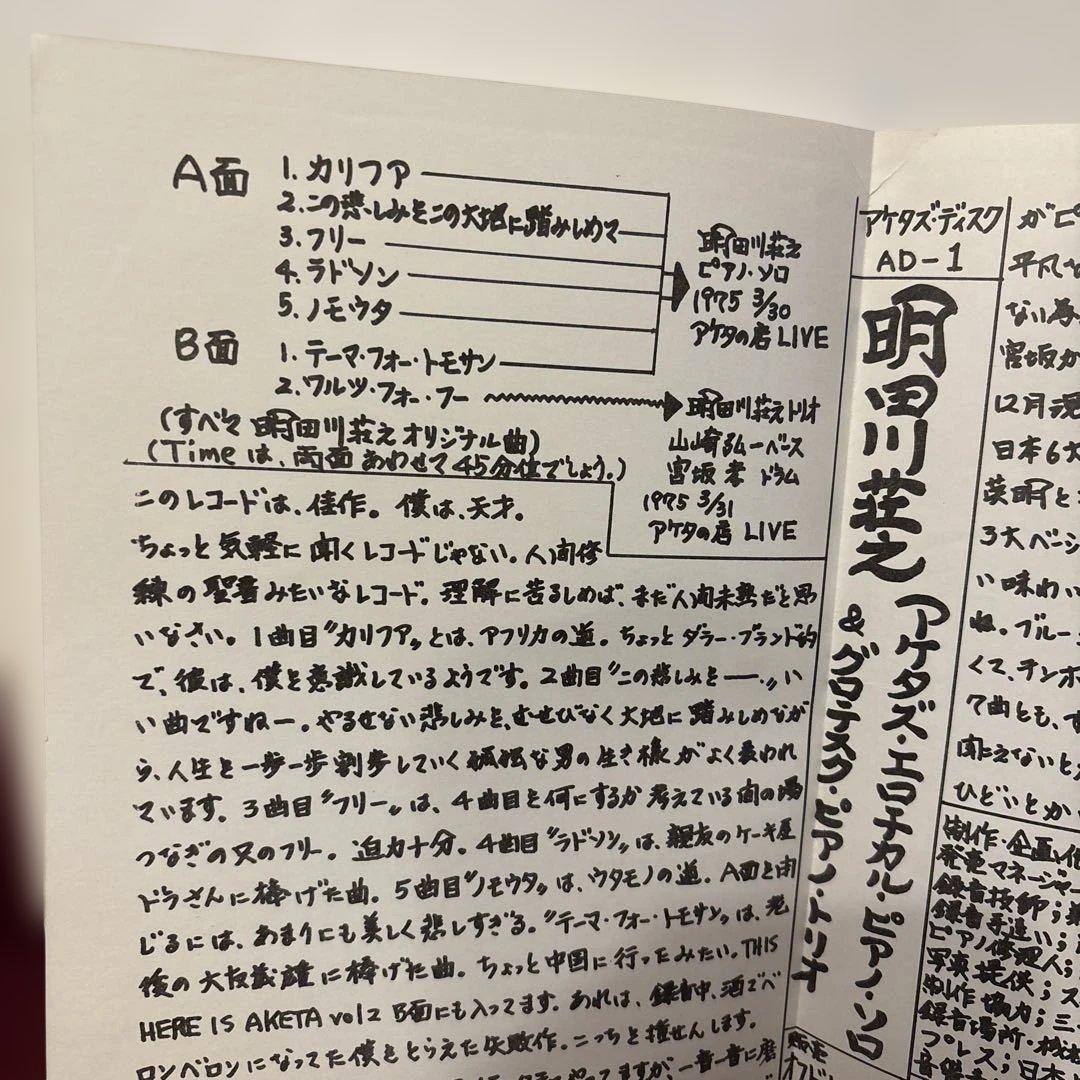 A面
1. カリファ
2. この悲しみをこの大地に踏みしめて
3. フリー
4. ラドソン
5. ノモウタ
明田川荘之
ピアノ・ソロ
1975 3/30
アケタの店 LIVE
B面
1. テーマ・フォー・トモサン
2. ワルツ・フォー・フー
明田川荘之トリオ
山崎弘一ベース
宮坂 孝 ドラム
1975 3/31
アケタの店 LIVE
(すべて 明田川荘之 オリジナル曲)
(Timeは、両面あわせて45分位でしょう。)
このレコードは、佳作。僕は、天才。
ちょっと気軽に聞くレコードじゃない。人間修
練の聖書みたいなレコード。理解に苦るしめば、まだ人間未熟だと思
いなさい。1曲目〝カリファ〟とは、アフリカの道。ちょっとダラー・ブランド的
で、彼は、僕を意識しているようです。2曲目〝この悲しみを──.〟い
い曲ですねー。やるせない悲しみを、むせびなく大地に踏みしめなが
ら、人生を一歩一歩割歩していく孤独な男の生き様がよく表われ
ています。3曲目〝フリー〟は、4曲目を何にするか考えている間の場
つなぎの又のフリー。迫力十分。4曲目〝ラドソン〟は、親友のケーキ屋
ドラさんに捧げた曲。5曲目〝ノモウタ〟は、ウタモノの道。A面を閉
じるには、あまりにも美しく悲しすぎる。〝テーマ・フォー・トモサン〟は、老
後の大友義雄に捧げた曲。ちょっと中国に行ったみたい。THIS
HERE IS AKETA vol2 B面にも入ってます。あれは、録音中、酒でベ
ロンベロンになってた僕をとらえた失敗作。こっちを推せんします。
やってますが、一音一音に磨
アケタズ・ディスク
AD-1
明田川荘之 アケタズ・エロチカル・ピアノ・ソロ
&グロテスク・ピアノ・トリオ
がピ
平凡な
ない
宮坂が
12月現
日本6大
葉明と
3大ベーシ
い味わい
ね。ブルー
くて、テンポ
7曲とも、す
聞こえないと
ひどいとか
制作・企画
発売マネージャー
録音技師;
録音手違い;
ピアノ修理人;
写真提供;ス
制作協力;三
録音場所・
プレス;日本
販売
オフ